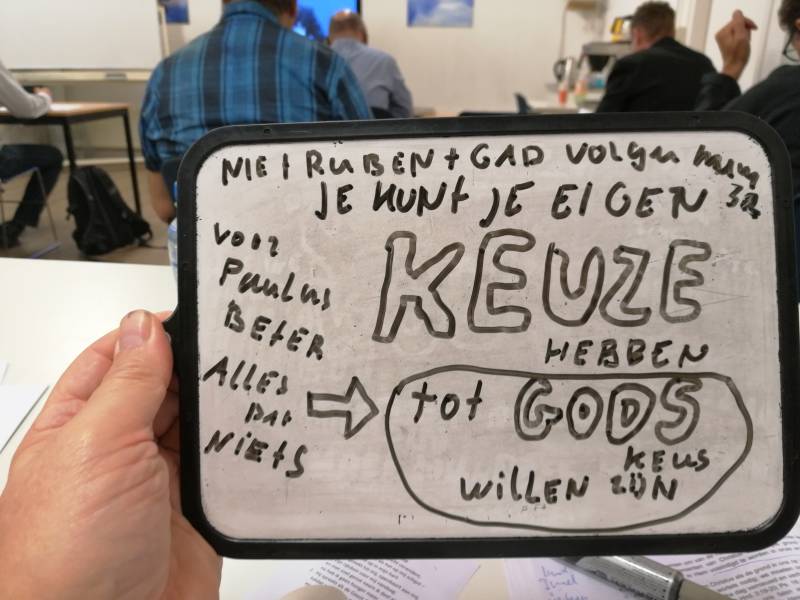 NIET RUBEN + GAD volgen num
32
JE KUNT JE EIGEN
KEUZE
HEBBEN
voor
Paulus
BETER
ALLES
NIETS
tot GODS
KEUS
WILLEN ZIJN